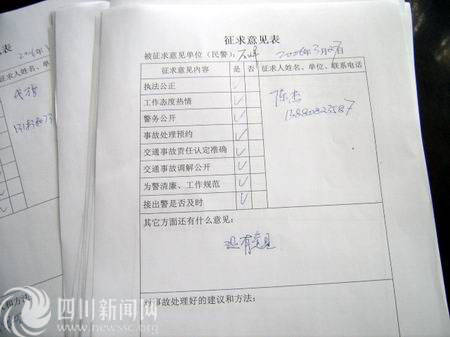 征求意见表
被征求意见单位（民警）：
征求意见内容 是 否 征求人姓名、单位、联系电话
执法公正 ✓
工作态度热情 ✓
警务公开 ✓
事故处理预约 ✓
交通事故责任认定准确 ✓
交通事故调解公开 ✓
为警清廉、工作规范 ✓
接出警是否及时 ✓
陈杰
其它方面还有什么意见：
没有意见
对事故处理好的建议和方法：
见表
求人姓名、单
议和方法
四川新闻网
www.newssc.org